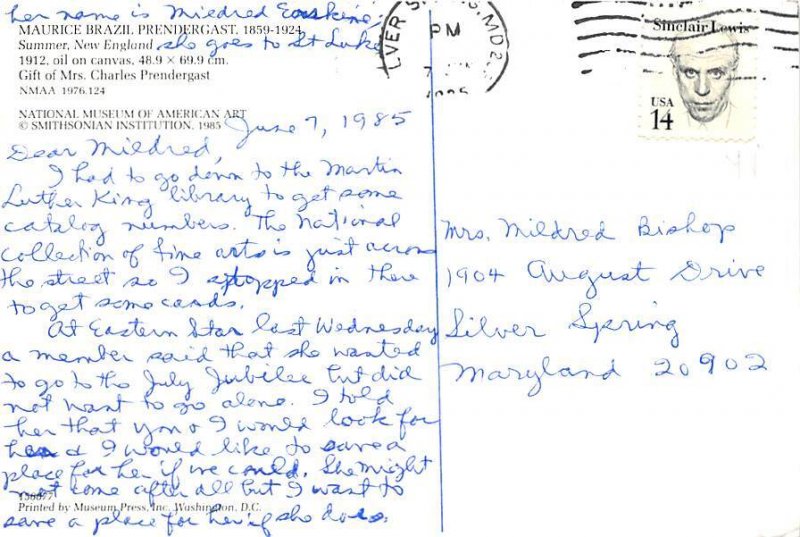 her name is Mildred Earskine,
MAURICE BRAZIL PRENDERGAST, 1859-1924
Summer, New England
she goes to St Luke
1912, oil on canvas, 48.9 × 69.9 cm.
Gift of Mrs. Charles Prendergast
NMAA 1976.124
NATIONAL MUSEUM OF AMERICAN ART
© SMITHSONIAN INSTITUTION, 1985
June 7, 1985
Dear Mildred,
I had to go down to the Martin
Luther King library to get some
catalog numbers. The national
collection of fine arts is just across
the street so I stopped in there
to get some cards.
At Eastern Star last Wednesday
a member said that she wanted
to go to the July Jubilee but did
not want to go alone. I told
her that you & I would look for
her & I would like to save a
place for her if we could. She might
not come after all but I want to
save a place for her if she does.
Printed by Museum Press, Inc. Washington, D.C.
LVER S MD 20
PM
7
1985
Sinclair Lewis
USA
14
Mrs. Mildred Bishop
1904 August Drive
Silver Spring
Maryland 20902